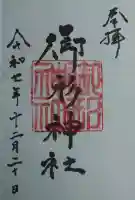 奉拝
御杉神社
令和七年十二月二十日